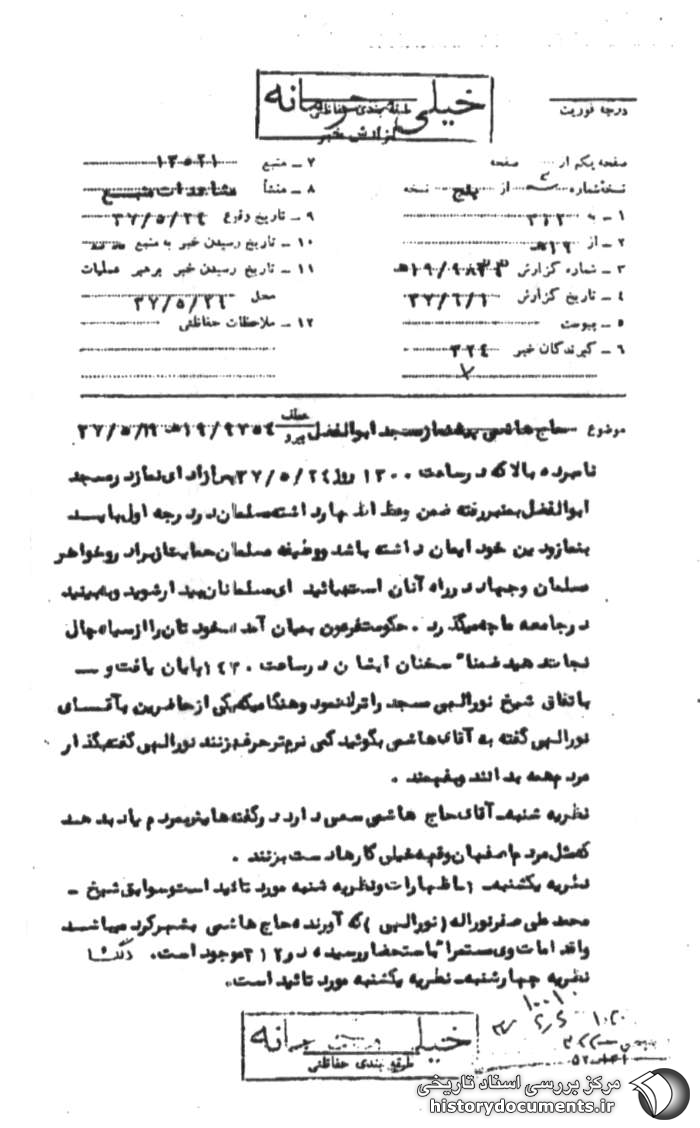 خیلی محرمانه
طبقه بندی حفاظتی
گزارش خبر
درجه فوریت
صفحه یکم از صفحه
نسخه شماره از پنج نسخه
۱ – به ۳۱۲
۲ – از ۱۶ هـ
۳ – شماره گزارش
۴ – تاریخ گزارش ۳۷/۶/۱
۵ – پیوست
۶ – گیرندگان خبر ۳۲۴
۷ – منبع ۱۳۵۲۱
۸ – منشأ مشاهدات منبع
۹ – تاریخ وقوع ۳۷/۵/۲۴
۱۰ – تاریخ رسیدن خبر به منبع
۱۱ – تاریخ رسیدن خبر برهبر عملیات
محل ۳۷/۵/۲۶
۱۲ – ملاحظات حفاظتی
موضوع حاج هاشمی پیشنماز مسجد ابوالفضل عطف پیرو
نامبرده بالا که در ساعت ۱۳۰۰ روز ۳۷/۵/۲۴ پس از ادای نماز در مسجد
ابوالفضل بمنبر رفته ضمن وعظ اظهار داشته مسلمان در درجه اول باید
بنماز و دین خود ایمان داشته باشد و وظیفه مسلمان حمایت از برادر و خواهر
مسلمان و جهاد در راه آنان است بیائید ای مسلمانان بیدار شوید و ببینید
در جامعه ما چه میگذرد . حکومت فرعون بمیان آمده خودتان را از سیاه چال
نجات دهید ضمنا" سخنان ایشان در ساعت ۱۴۳۰ پایان یافت و –
باتفاق شیخ نورالهی مسجد را ترک نمود و هنگامیکه یکی از حاضرین بآقای
نورالهی گفته به آقای هاشمی بگوئید کمی نرم تر حرف بزنند نورالهی گفته بگذار
مردم همه بدانند و بفهمند .
نظریه شنبه – آقای حاج هاشمی سعی دارد در گفته هایش بمردم یاد بدهد
که مثل مردم اصفهان و قم به خیلی کارها دست بزنند .
نظریه یکشنبه – اظهارات و نظریه شنبه مورد تائید است و سوابق شیخ –
محمد علی صفر نوراله ( نورالهی ) که آورنده حاج هاشمی بشهرکرد میباشد
و اقدامات وی مستمرا" باستحضار رسیده در ۳۱۲ موجود است .
نظریه چهارشنبه – نظریه یکشنبه مورد تائید است .
خیلی محرمانه
طبقه بندی حفاظتی
مرکز بررسی اسناد تاریخی
historydocuments.ir